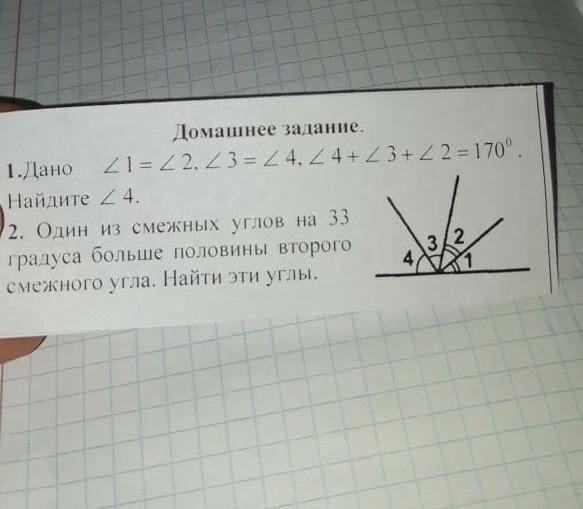 Домашнее задание.
1.Дано ∠1 = ∠2, ∠3 = ∠4, ∠4 + ∠3 + ∠2 = 170⁰.
Найдите ∠4.
2. Один из смежных углов на 33
градуса больше половины второго
смежного угла. Найти эти углы.
4 3 2 1